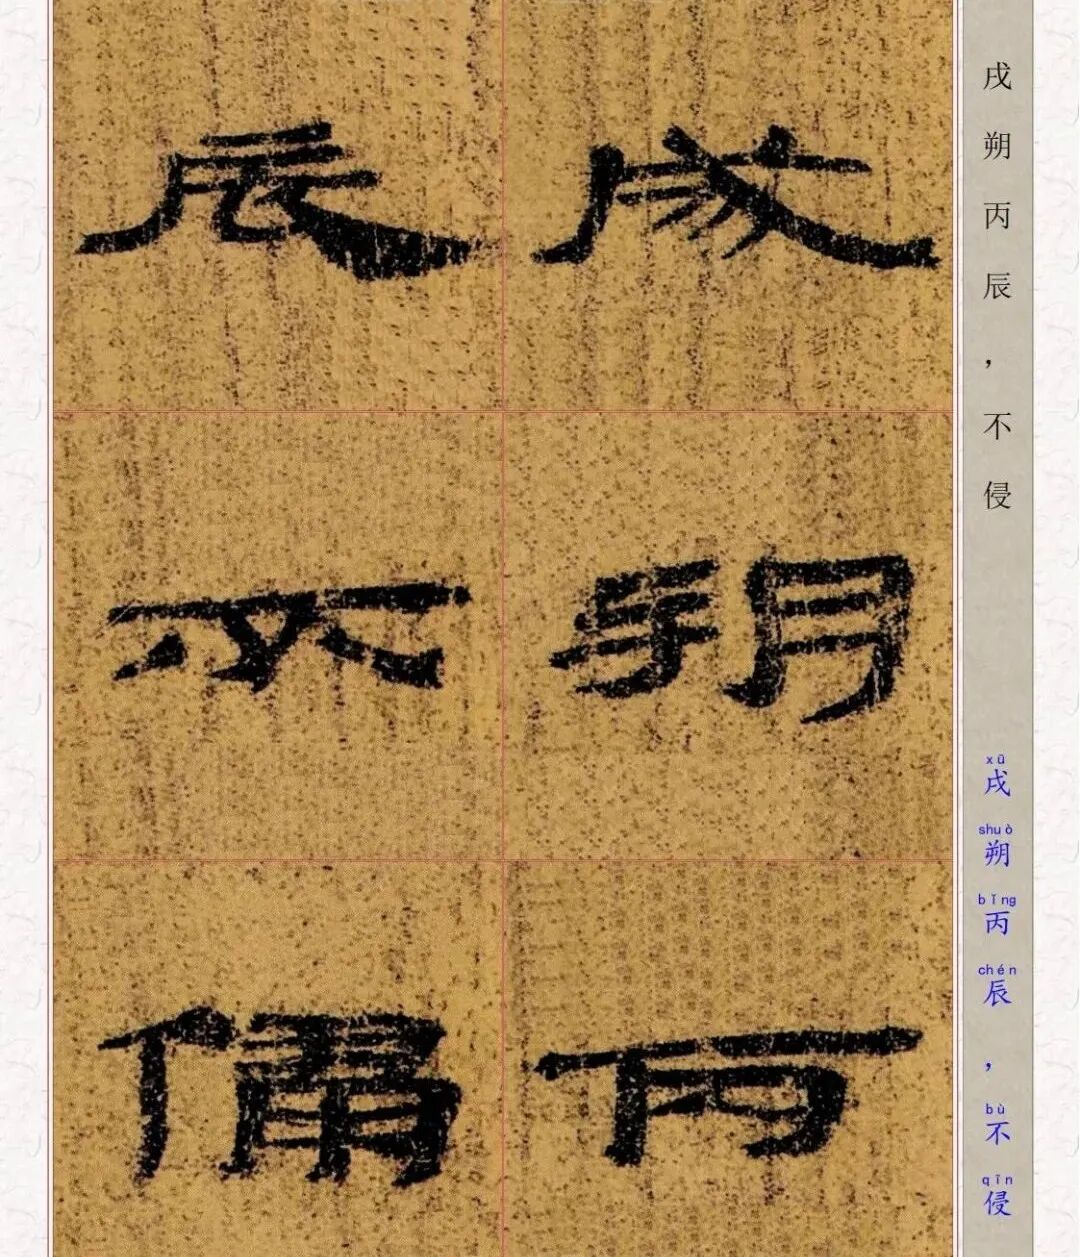 戌朔丙辰，不侵
xū shuò bǐng chén bù qīn
戌朔丙辰，不侵
戌朔丙
辰不